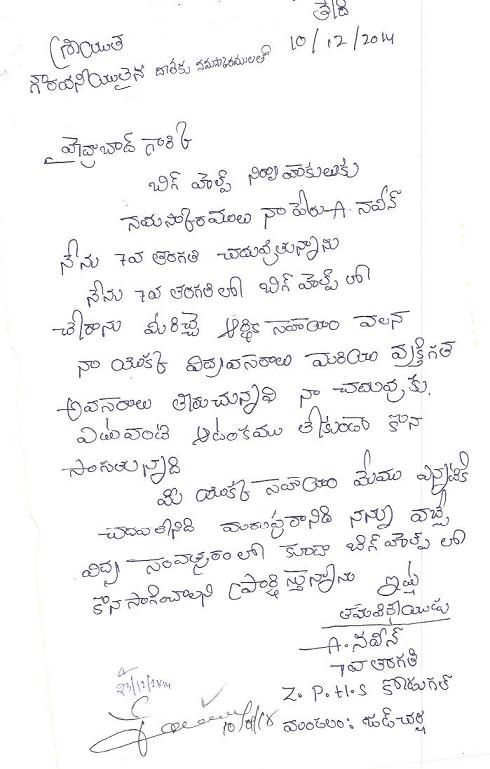 తేది
10/12/2014
శ్రీయుత
గౌరవనీయులైన దాతకు నమస్కారములతో
హైద్రాబాద్ గారికి
బిగ్ హెల్ప్ నిర్వాహకులకు
నమస్కారములు నా పేరు A. నవీన్
నేను 7వ తరగతి చదువుతున్నాను
నేను 7వ తరగతిలో బిగ్ హెల్ప్ లో
చేరాను మీరిచ్చే ఆర్థిక సహాయం వలన
నా యొక్క విద్యావసరాలు మరియు వ్యక్తిగత
అవసరాలు తీరుచున్నాది నా చదువుకు
ఎటువంటి ఆటంకము లేకుండా కొన
సాగుతున్నది
మీ యొక్క సహాయం మేము ఎన్నటికి
మరువరానిది నన్ను వచ్చే
విద్య సంవత్సరంలో కూడా బిగ్ హెల్ప్ లో
కొనసాగించాలని ప్రార్థిస్తున్నాను ఇట్లు
తమ విధేయుడు
A. నవీన్
7వ తరగతి
Z. P. H. S కోడుగల్
మండలం: జడ్చర్ల
23/12/2014